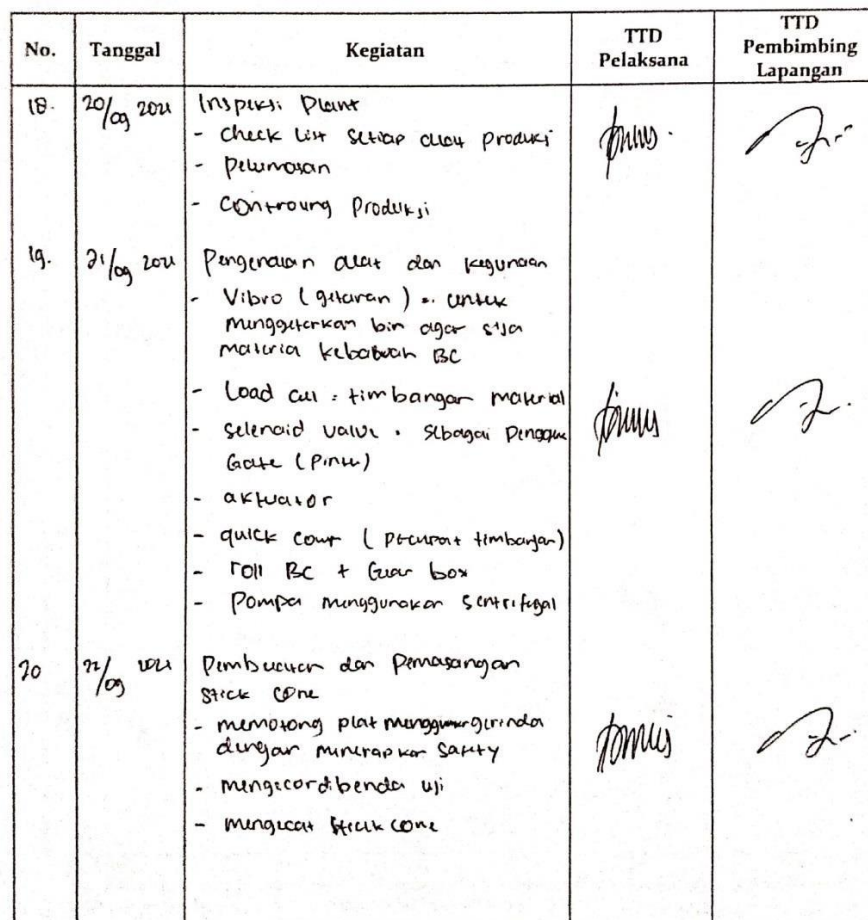 No.
Tanggal
Kegiatan
TTD
Pelaksana
TTD
Pembimbing
Lapangan
18. 20/09 2021 Inspeksi Plant
- Check list setiap alat produksi
- pelumasan
- Controlling Produksi
19. 21/09 2021 Pengenalan alat dan kegunaan
- Vibro (getaran) : untuk
menggetarkan bin agar sisa
materia kebabwah BC
- Load cell : timbangan material
- selenoid valve : sebagai
Gate (Pintu)
- aktuator
- quick count ( timbangan)
- roll BC + Gear box
- Pompa menggunakan sentrifugal
20 22/09 2021 Pembuatan dan Pemasangan
Stick Cone
- memotong plat gerinda
dengan menerapkan safety
- mengecor dibenda uji
- mengecat stick cone